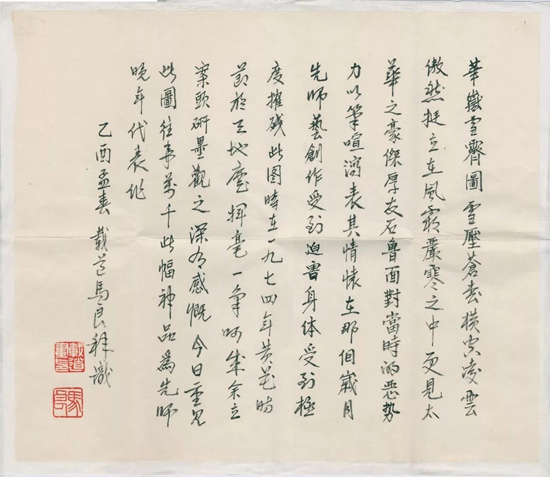 華嶽雪霽圖雪壓蒼橫空凌雲
傲然挺立在風霜嚴寒之中更見太
華之豪傑厚友石魯面對當時的惡勢
力以筆喧瀉表其情懷在那個歲月
先師藝創作受到迫害身体受到極
度摧殘此图時在一九七四年黃花時
節於工地揮毫一氣呵成余立
案頭研墨觀之深有感慨今日重見
此圖往事萬千此幅神品為先師
晚年代表作
乙酉孟春 戴道馬良識